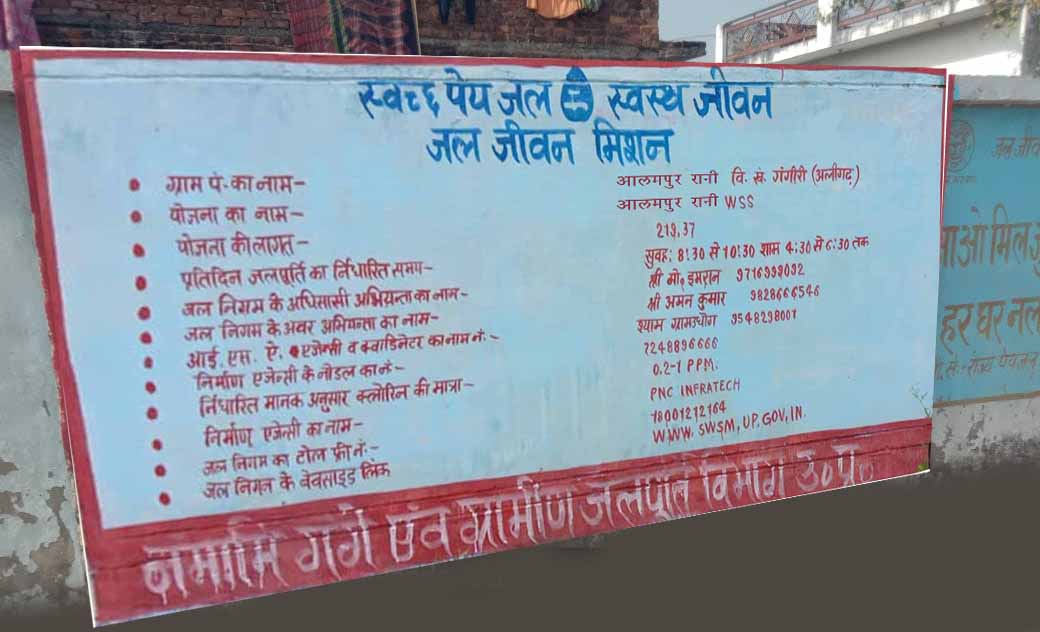 स्वच्छ पेय जल स्वस्थ जीवन
जल जीवन मिशन
ग्राम पं. का नाम- आलमपुर रानी वि. खं. गंगीरी (अलीगढ़)
योजना का नाम- आलमपुर रानी WSS
योजना की लागत- 219.37
प्रतिदिन जलपूर्ति का र्निधारित समय- सुवह: 8:30 से 10:30 शाम 4:30 से 6:30 तक
जल निगम के अधिसासी अभियन्ता का नाम- श्री मो. इमरान 9716998092
जल निगम के अवर अभियन्ता का नाम- श्री अमन कुमार 9828666546
आई. एस. ऐ. एजेन्सी व क्वाडिनेटर का नाम नं:- श्याम ग्रामउधोग 9548298001
निर्माण एजेन्सी के नोडल का नं- 7248896666
र्निधारित मानक अनुसार क्लोरिन की मात्रा- 0.2-1 PPM.
निर्माण एजेन्सी का नाम- PNC INFRATECH
जल निगम का टोल फ्री नं:- 18001212164
जल निगम के वेवसाइड लिंक WWW. SWSM, UP, GOV, IN.
नमामि गंगे एंव ग्रामीण जलपूर्ति विभाग उ० प्र०
जल जीव
आओ मिल जु
हर घर नल